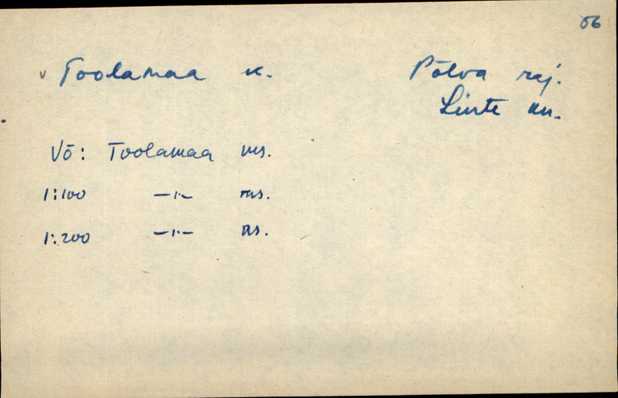 06
v Toolamaa k. Põlva raj.
Linte kn.
Võ: Toolamaa ms.
1:100 —"— ms.
1:200 —"— as.